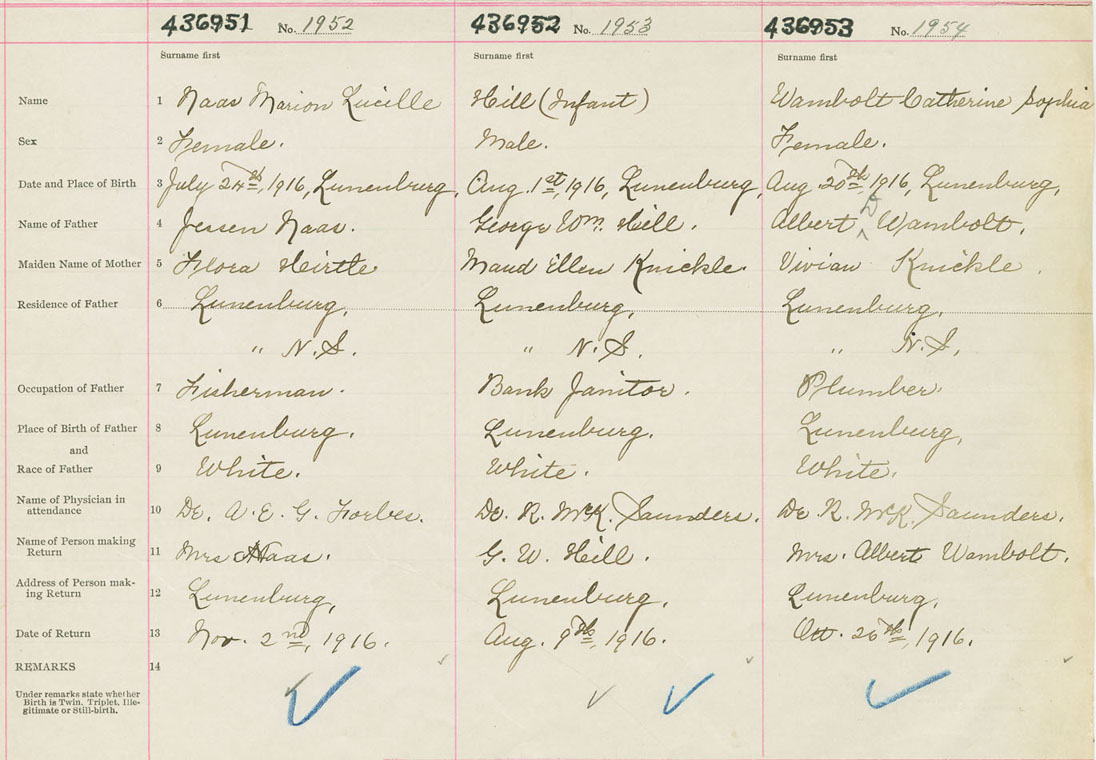 436951 No. 1952 436952 No. 1953 436953 No. 1954
Surname first Surname first Surname first
Name 1 Naas Marion Lucille Hill (Infant) Wambolt Catherine Sophia
Sex 2 Female. Male. Female.
Date and Place of Birth 3 July 24th, 1916, Lunenburg, Aug. 1st, 1916, Lunenburg, Aug 20th, 1916, Lunenburg,
Name of Father 4 Jessen Naas. George Wm. Hill. Albert D Wambolt.
Maiden Name of Mother 5 Flora Heirtle Maud Ellen Knickle. Vivian Knickle.
Residence of Father 6 Lunenburg, Lunenburg, Lunenburg,
" N.S. " N.S. " N.S.
Occupation of Father 7 Fisherman. Bank Janitor. Plumber.
Place of Birth of Father 8 Lunenburg. Lunenburg. Lunenburg,
and
Race of Father 9 White. White. White.
Name of Physician in
attendance 10 Dr. A. E. G. Forbes. Dr. R. McK. Saunders. Dr R. McK. Saunders.
Name of Person making
Return 11 Mrs Naas. G. W. Hill. Mrs. Albert Wambolt.
Address of Person mak-
ing Return 12 Lunenburg, Lunenburg, Lunenburg,
Date of Return 13 Nov. 2nd, 1916. Aug. 9th, 1916. Oct. 26th, 1916.
REMARKS 14
Under remarks state whether
Birth is Twin. Triplet. Ille-
gitimate or Still-birth.